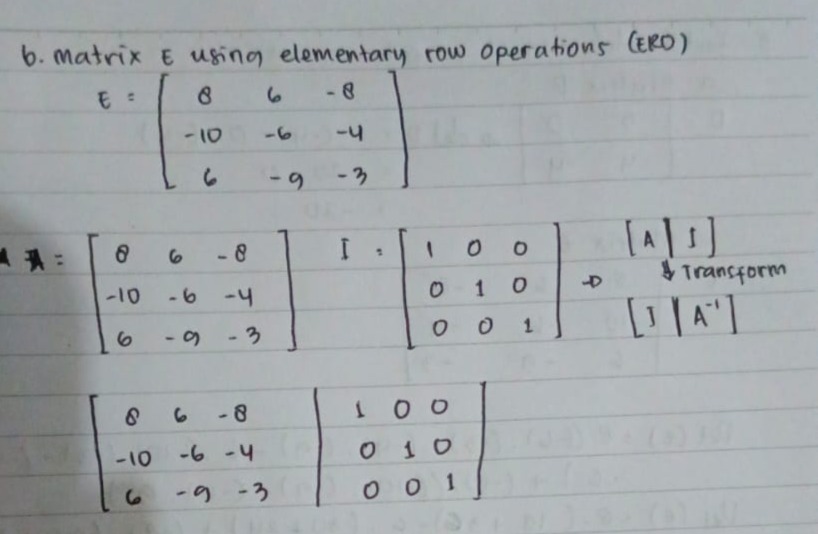 b. matrix E using elementary row operations (ERO)
E = [ 8 6 -8
-10 -6 -4
6 -9 -3 ]
A = [ 8 6 -8
-10 -6 -4
6 -9 -3 ]
I = [ 1 0 0
0 1 0
0 0 1 ]
→ [A | I]
↓ Transform
[I | A⁻¹]
[ 8 6 -8 | 1 0 0
-10 -6 -4 | 0 1 0
6 -9 -3 | 0 0 1 ]